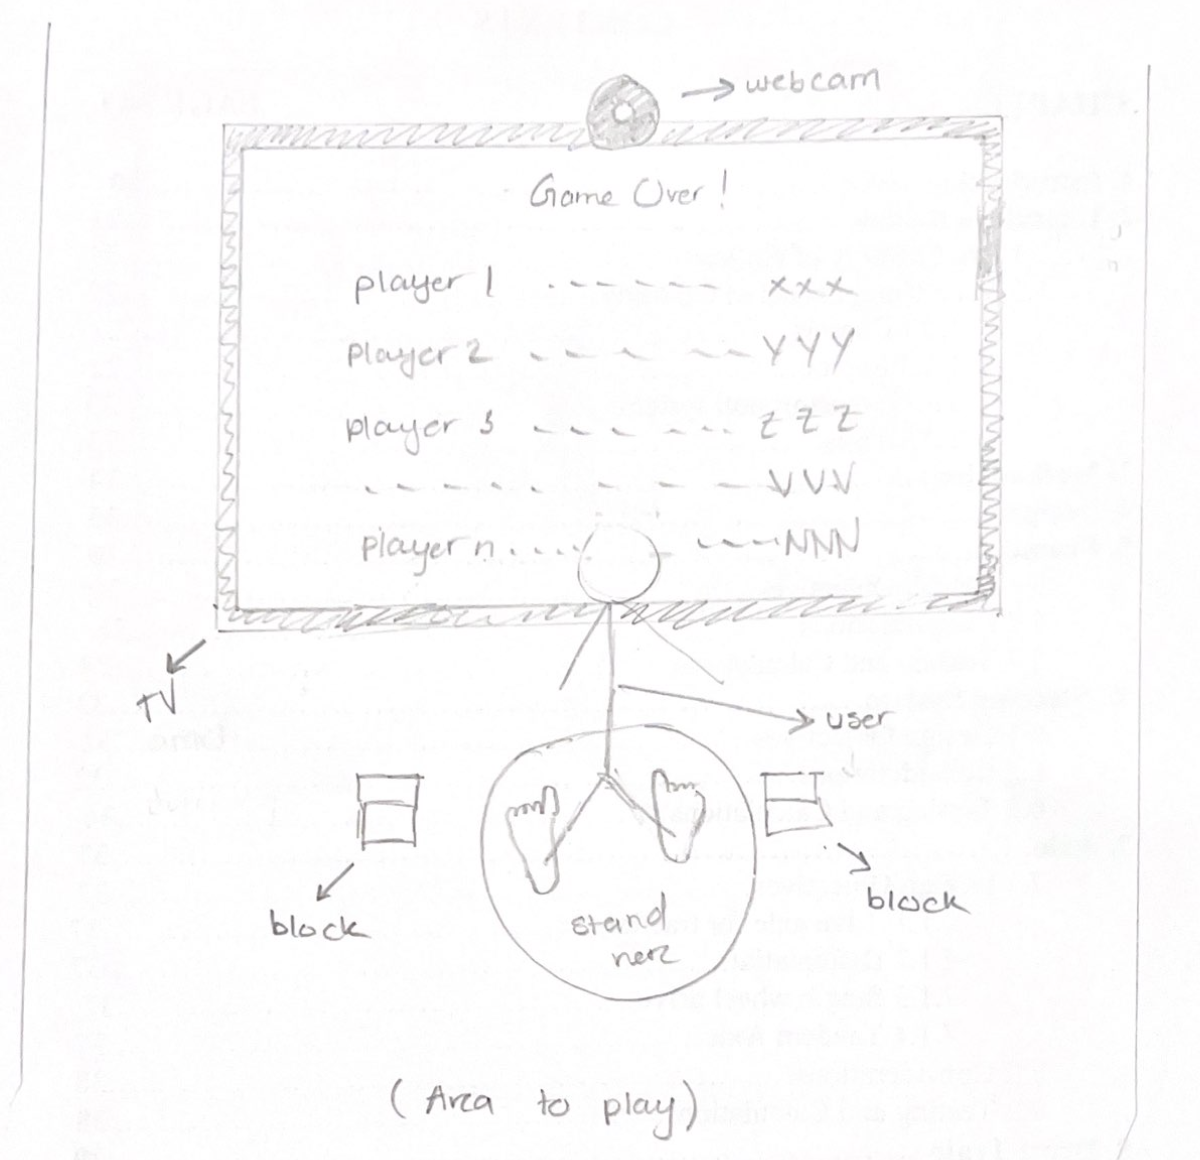 webcam
Game Over!
player 1 ------- xxx
player 2 --- -- YYY
player 3 --- --- ZZZ
----- -- -- VVV
player n .... - ---- NNN
TV
user
block
block
stand
here
(Area to play)